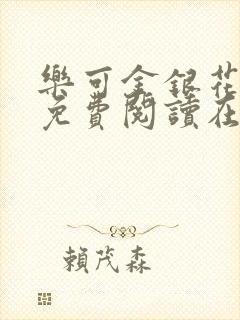 樂可金銀花
免費閱讀在
賴茂森